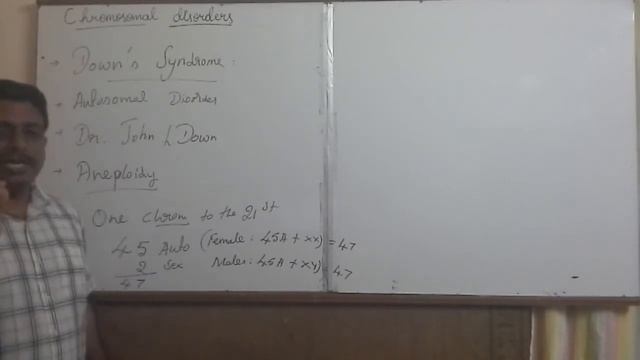 Chromosomal disorders
→ Down's Syndrome:
→ Autosomal Disorder
→ Dr. John L Down
→ Aneploidy
One chrom to the 21st
45 Auto (Female: 45A + XX) = 47
2 Sex Males: 45A + XY) = 47
47